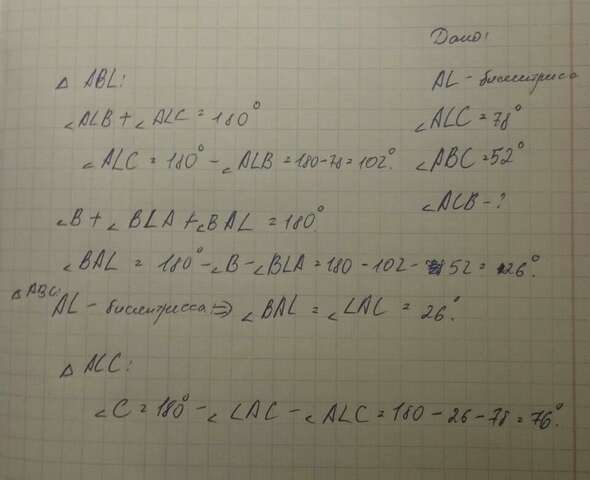 Дано:
AL - биссектриса
∠ALC = 78°
∠ABC = 52°
∠ACB - ?
△ ABL:
∠ALB + ∠ALC = 180°
∠ALC = 180° - ∠ALB = 180 - 78 = 102°.
∠B + ∠BLA + ∠BAL = 180°.
∠BAL = 180° - ∠B - ∠BLA = 180 - 102 - 52 = 26°.
△ABC:
AL - биссектрисса ⇒ ∠BAL = ∠LAC = 26°.
△ ALC:
∠C = 180° - ∠LAC - ∠ALC = 180 - 26 - 78 = 76°.